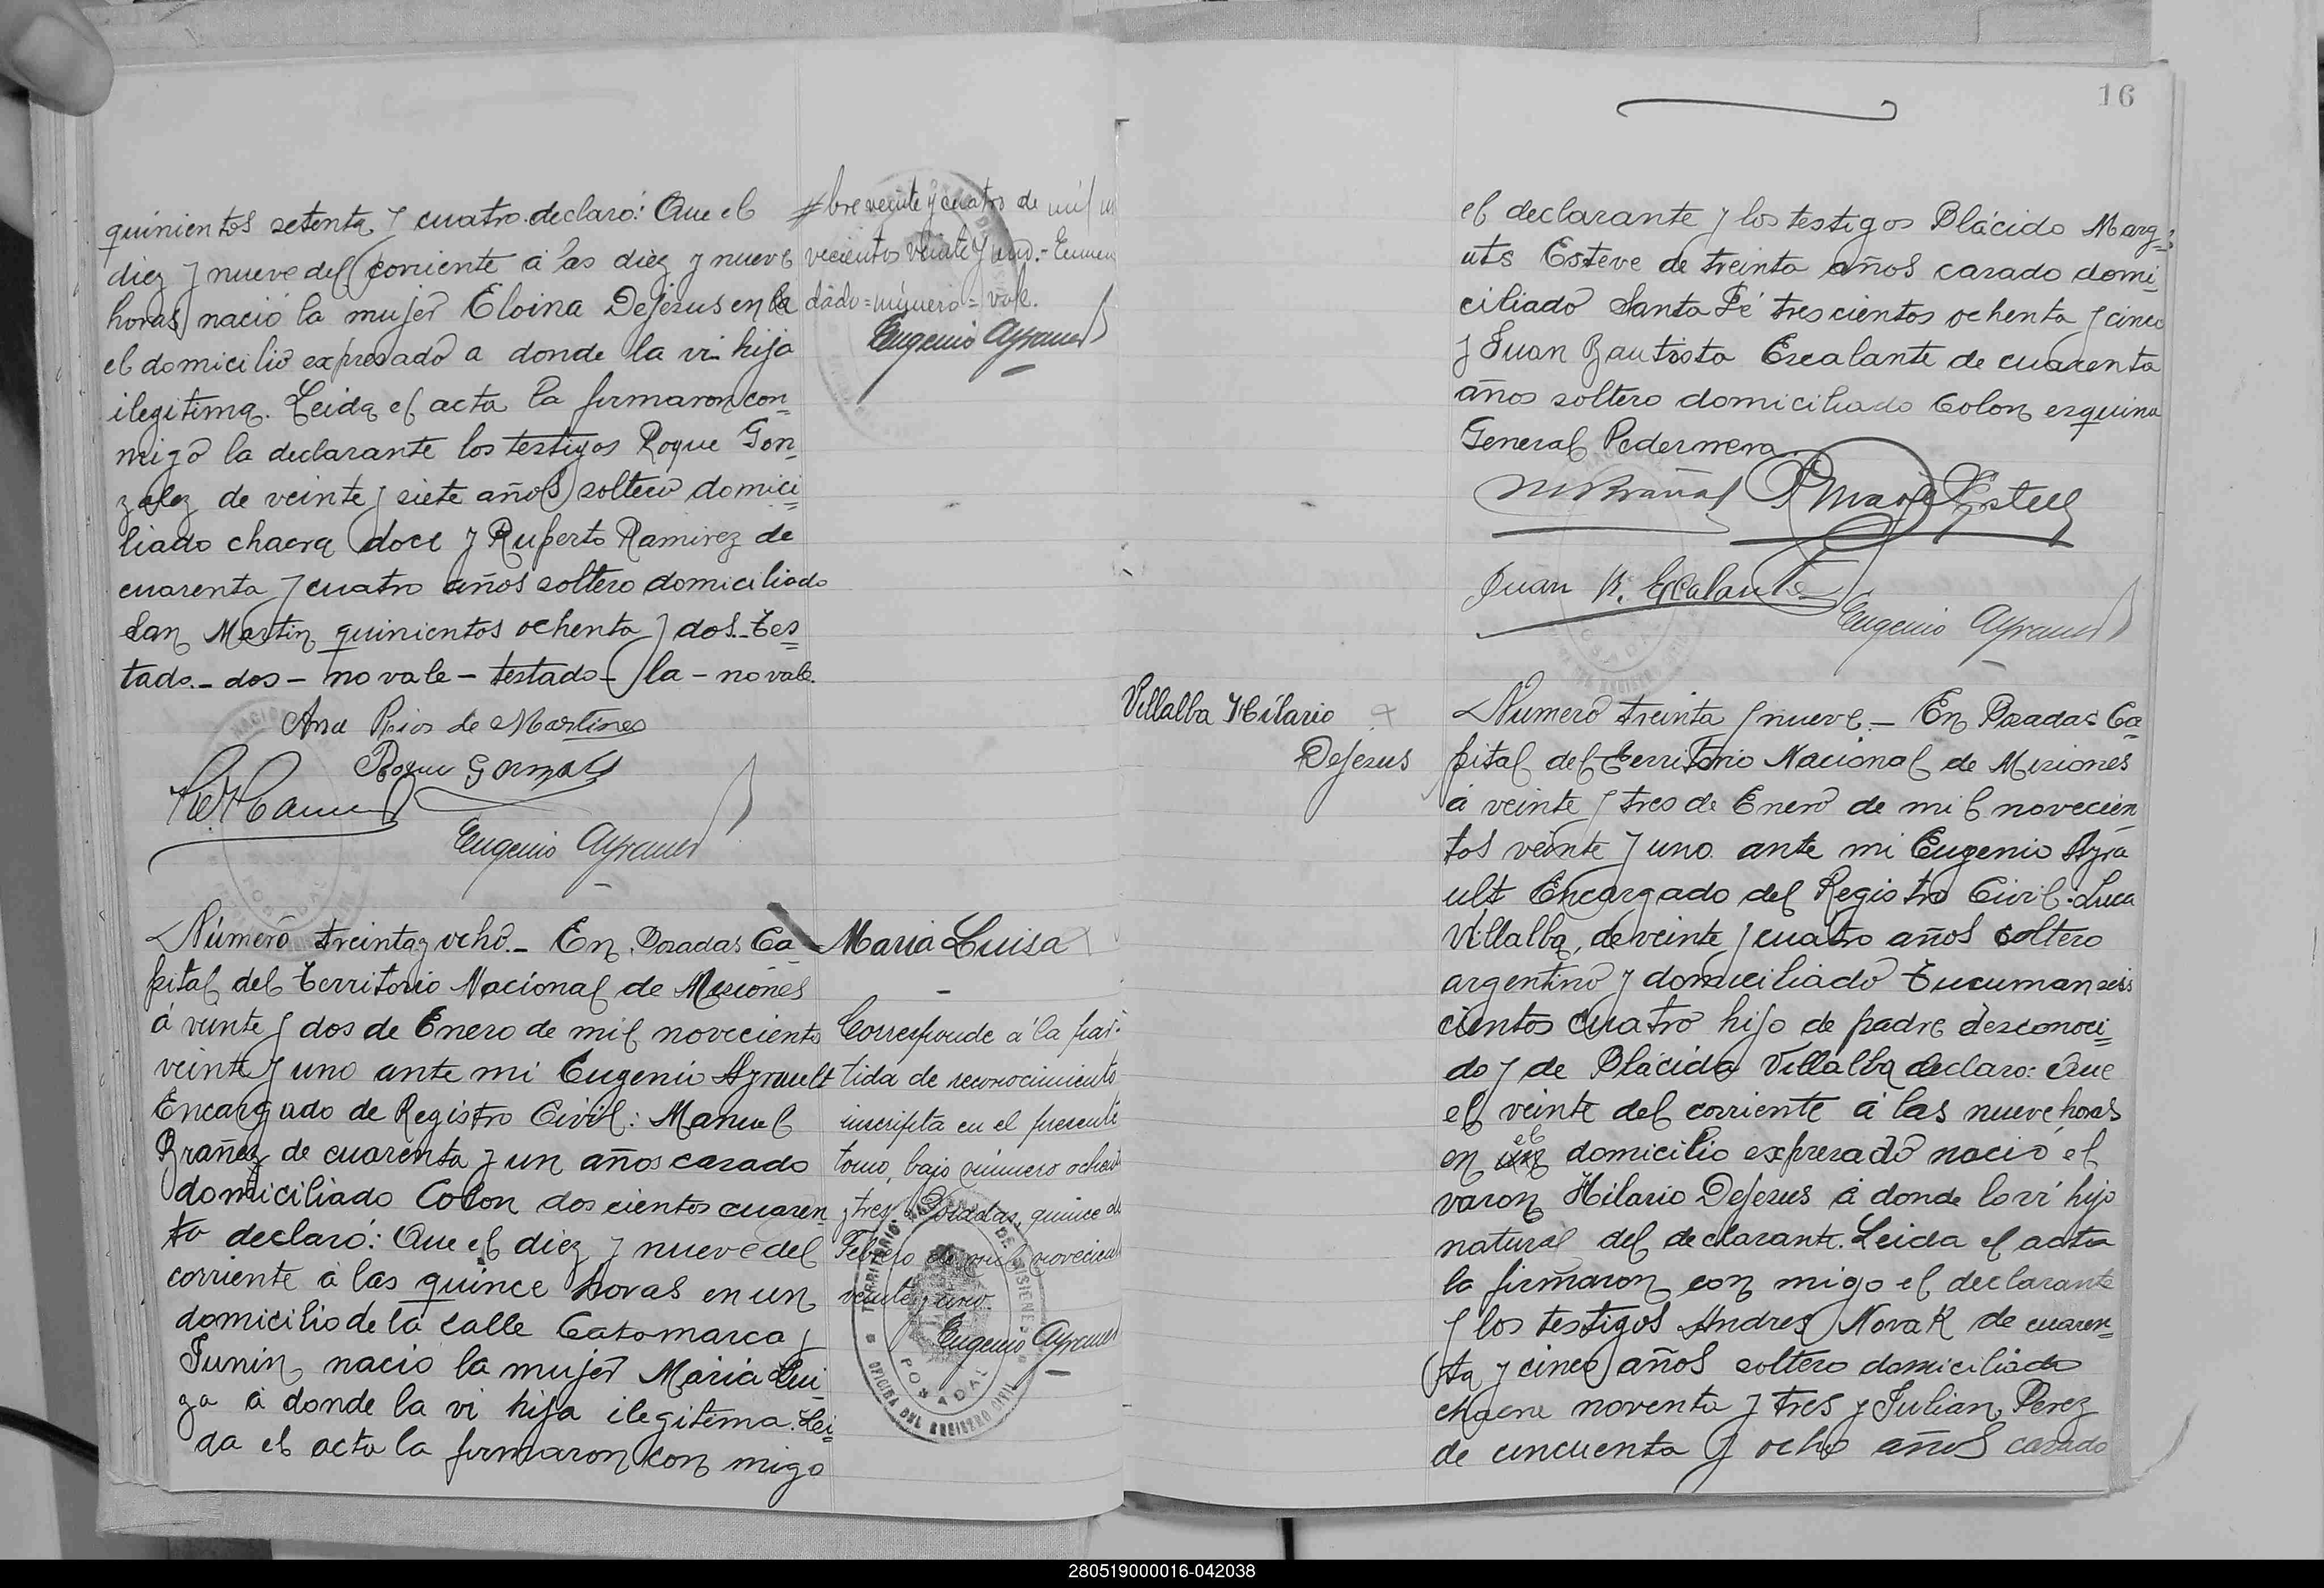 quinientos setenta y cuatro declaró: Que el
diez y nueve del corriente á las diez y nueve
horas nació la mujer Eloina DeJesus en la
el domicilio expresado a donde la vi hija
ilegitima. Leida el acta la firmaron con-
migo la declarante los testigos Roque Gon-
zalez de veinte y siete años soltero domici
liado chacra doce y Ruperto Ramirez de
cuarenta y cuatro años soltero domiciliado
San Martin quinientos ochenta y dos. Tes-
tado.- dos - no vale - testado - la - no vale.
Ana Rios de Martines
Roque Gonzalez
Eugenio Ayrault
#bre veinte y cuatro de mil
vecientos veinte y uno.- Enmen
dado = número = vale.
Eugenio Ayrault
Número treinta y ocho.- En Posadas Ca-
pital del Territorio Nacional de Misiones
á veinte y dos de Enero de mil novecientos
veinte y uno ante mi Eugenio Ayrault
Encargado de Registro Civil: Manuel
Brañas de cuarenta y un años casado
domiciliado Colon dos cientos cuaren
ta declaró: Que el diez y nueve del
corriente á las quince horas en un
domicilio de la calle Catamarca y
Junin nació la mujer Maria Lui-
za á donde la vi hija ilegitima. Lei-
da el acta la firmaron con migo
Maria Luisa
Corresponde á la par-
tida de reconocimiento
inscripta en el presente
tomo, bajo número ochen
y tres. Posadas, quince de
Febrero de mil novecient
veinte y uno.
Eugenio Ayrault
TERRITORIO DE MISIONES
OFICINA DEL REGISTRO CIVIL
POSADAS
16
el declarante y los testigos Plácido Marg-
uts Esteve de treinta años casado domi-
ciliado Santa Fé tres cientos ochenta y cinco
y Juan Bautista Escalante de cuarenta
años soltero domiciliado Colon esquina
General Pedernera.
M Brañas P Marg Esteve
Juan B. Escalante
Eugenio Ayrault
Villalba Hilario
DeJesus
Número treinta y nueve.- En Posadas Ca
pital del Territorio Nacional de Misiones
á veinte y tres de Enero de mil novecien
tos veinte y uno ante mi Eugenio Ayra
ult Encargado del Registro Civil: Luca
Villalba, de veinte y cuatro años soltero
argentino y domiciliado Tucuman seis
cientos cuatro hijo de padre desconoci-
do y de Plácida Villalba declaro: Que
el veinte del corriente á las nueve horas
en un el domicilio expresado nació el
varon Hilario DeJesus á donde lo ví hijo
natural del declarante. Leida el acta
la firmaron con migo el declarante
y los testigos Andres Novak de cuaren-
ta y cinco años soltero domiciliado
chacra noventa y tres y Julian Perez
de cincuenta y ocho años casado
280519000016-042038